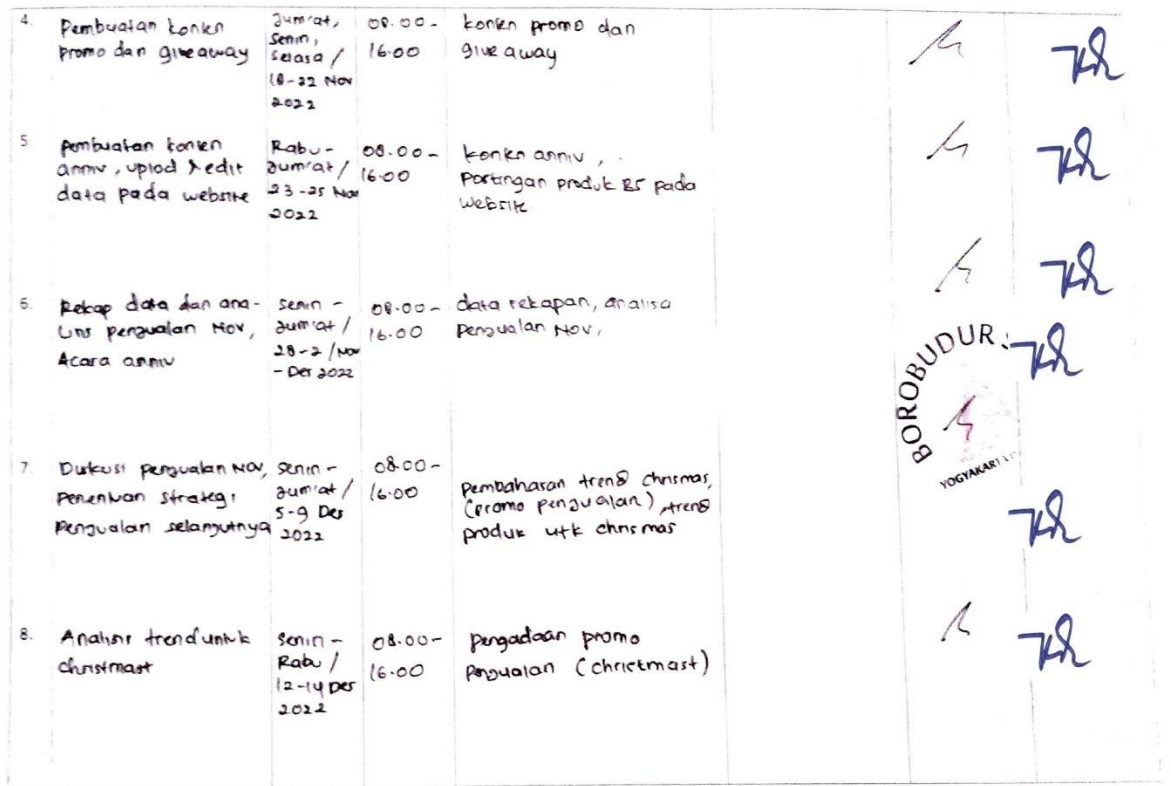 4. Pembuatan konten
promo dan giveaway
Jum'at,
Senin,
Selasa /
18-22 Nov
2022
08.00-
16.00
konten promo dan
giveaway
5 Pembuatan konten
anniv, uplod & edit
data pada website
Rabu-
Jum'at /
23-25 Nov
2022
08.00-
16.00
konten anniv,
Postingan produk BS pada
website
6. Rekap data dan ana-
lisis penjualan Nov,
Acara anniv
Senin -
Jum'at /
28-2 /Nov
- Des 2022
08.00-
16.00
data rekapan, analisa
Penjualan Nov,
BOROBUDUR
YOGYAKARTA
7. Diskusi penjualan Nov,
Penentuan strategi
Penjualan selanjutnya
Senin -
Jum'at /
5-9 Des
2022
08.00-
16.00
Pembahasan trend chrismas,
(promo penjualan), trend
produk utk chrismas
8. Analisis trend untuk
christmast
Senin -
Rabu /
12-14 Des
2022
08.00-
16.00
Pengadaan promo
Penjualan (christmast)